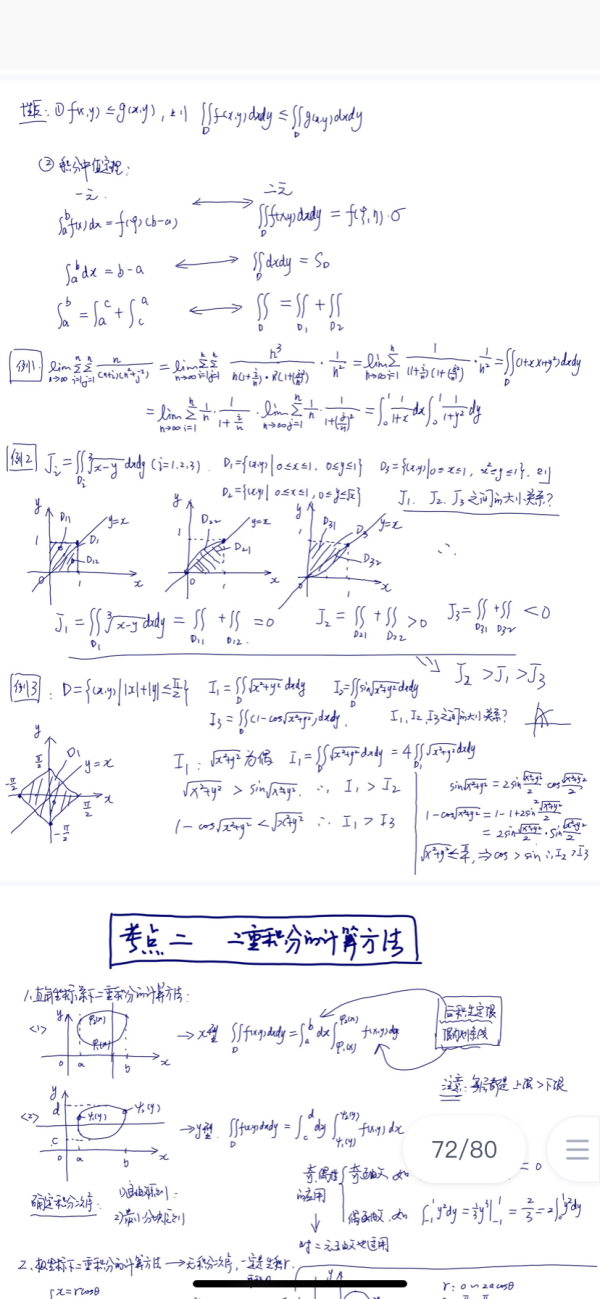 性质: ① f(x,y) ≤ g(x,y), 则 ∬_D f(x,y)dxdy ≤ ∬_D g(x,y)dxdy
② 积分中值定理:
一元 ⟷ 二元
∫_a^b f(x)dx = f(φ)(b-a) ∬_D f(x,y)dxdy = f(φ,η)·σ
∫_a^b dx = b-a ⟷ ∬_D dxdy = S_D
∫_a^b = ∫_a^c + ∫_c^a ⟷ ∬_D = ∬_{D1} + ∬_{D2}
例1. lim_{n→∞} Σ_{i=1}^n Σ_{j=1}^n n/((n+i)(n²+j²)) = lim_{n→∞} Σ_{i=1}^n Σ_{j=1}^n
= lim_{n→∞} Σ_{i=1}^n 1/n · 1/(1+i/n) · lim_{n→∞} Σ_{j=1}^n 1/n · 1/(1+(j/n)²) = ∫_0^1 1/(1+x) dx ∫_0^1 1/(1+y²) dy
例2 J_i = ∬_{Di} ∛(x-y) dxdy (i=1.2.3). D₁={(x,y)| 0≤x≤1. 0≤y≤1} D₃={(x,y)|0≤x≤1, x²≤y≤1}. 则
D₂={(x,y)| 0≤x≤1, 0≤y≤√x} J₁. J₂. J₃之间的大小关系?
y D11 y=x D1 D12 0 1 x
y D22 y=x D21 1 x
y D31 y=x D3 D32 0 1 x
∴
J₁ = ∬_{D1} ∛(x-y) dxdy = ∬_{D11} + ∬_{D12} = 0 J₂ = ∬_{D21} + ∬_{D22} > 0 J₃ = ∬_{D31} + ∬_{D32} < 0
J₂ > J₁ > J₃
例3: D={(x,y)| |x|+|y|≤π/2} I₁=∬_D √(x²+y²) dxdy I₂=∬_D sin√(x²+y²) dxdy
I₃=∬_D (1-cos√(x²+y²))dxdy. I₁, I₂, I₃之间的大小关系?
y π/2 D1 y=x -π/2 π/2 x -π/2
I₁: √(x²+y²) 为偶 I₁=∬_D √(x²+y²) dxdy = 4∬_{D1} √(x²+y²) dxdy
√(x²+y²) > sin√(x²+y²). ∴ I₁ > I₂
1-cos√(x²+y²) < √(x²+y²) ∴ I₁ > I₃
sin√(x²+y²) = 2sin(√(x²+y²)/2) cos(√(x²+y²)/2)
1-cos√(x²+y²) = 1-1+2sin²(√(x²+y²)/2)
= 2sin(√(x²+y²)/2)·sin(√(x²+y²)/2)
⇒cos > sin ∴ I₂ > I₃
考点二 二重积分的计算方法
1.直角坐标系下二重积分的计算方法:
<1> y φ₂(x) φ₁(x) 0 a b x
→x型 ∬_D f(x,y)dxdy = ∫_a^b dx ∫_{φ₁(x)}^{φ₂(x)} f(x,y)dy
后积先定限
限内划条线
注意: 上限>下限
<2> y d c ψ₁(y) ψ₂(y) 0 a b x
→y型. ∬_D f(x,y)dxdy = ∫_c^d dy ∫_{ψ₁(y)}^{ψ₂(y)} f(x,y) dx
72/80
确定积分次序:
奇偶性的应用
奇函数 = 0
偶函数. ∫_{-1}^1 y²dy = 1/3 y³|_{-1}^1 = 2/3 = 2∫_0^1 y²dy
对二元函数也适用
2. 极坐标下二重积分的计算方法 →无积分次序, 一定是先积r.
{x=rcosθ
r: 0~2acosθ